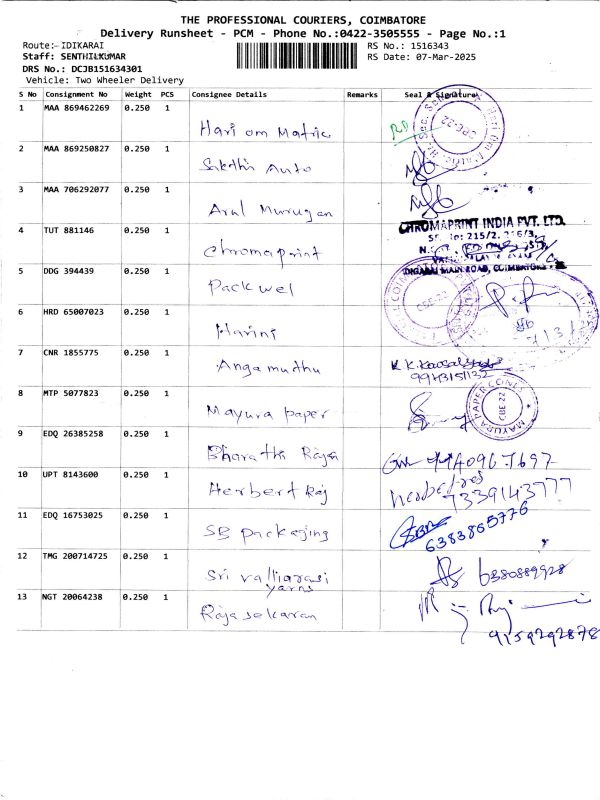 THE PROFESSIONAL COURIERS, COIMBATORE
Delivery Runsheet - PCM - Phone No.:0422-3505555 - Page No.:1
Route:- IDIKARAI RS No.: 1516343
Staff: SENTHILKUMAR RS Date: 07-Mar-2025
DRS No.: DCJB151634301
Vehicle: Two Wheeler Delivery
S No Consignment No Weight PCS Consignee Details Remarks Seal & Signature
1 MAA 869462269 0.250 1
Hari om Matric
2 MAA 869250827 0.250 1
Sakthi Auto
3 MAA 706292077 0.250 1
Arul Murugan
4 TUT 881146 0.250 1
CHROMAPRINT INDIA PVT. LTD.
Chromaprint
5 DDG 394439 0.250 1
MAIN ROAD, COIMBATORE
Packwel
CBE-22
6 HRD 65007023 0.250 1
Harini
7 CNR 1855775 0.250 1
Angamuthu
8 MTP 5077823 0.250 1
Mayura paper
MAYURA PAPER CONES
CBE-22
9 EDQ 26385258 0.250 1
Bharathi Rajan
10 UPT 8143600 0.250 1
Herbert Raj
7339143777
11 EDQ 16753025 0.250 1
SB packaging
6383865776
12 TMG 200714725 0.250 1
Sri valliarasi
yarns
6380889928
13 NGT 20064238 0.250 1
Rajasekaran
9159292878